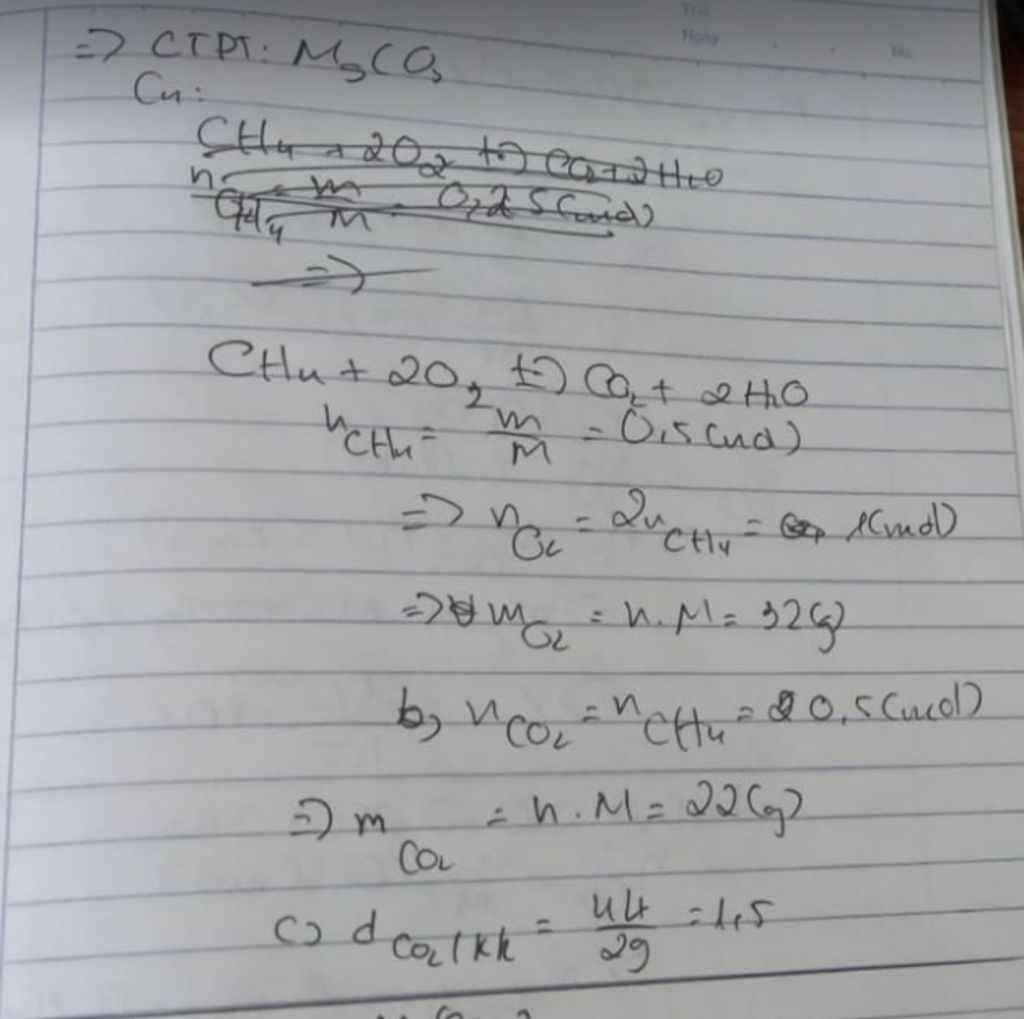 Thứ
Ngày
No.
=> CTPT: MgCO3
C4:
CH4 + 2O2 t=) CO2 + 2H2O
nCH4 = m/M = 0,25 (mol)
=>
CH4 + 2O2 t=) CO2 + 2H2O
nCH4 = m/M = 0,5 (mol)
=> nO2 = 2nCH4 = 1 (mol)
=> mO2 = n.M = 32 (g)
b, nCO2 = nCH4 = 0,5 (mol)
=) mCO2 = n.M = 22 (g)
c) d CO2/kk = 44/29 = 1,5